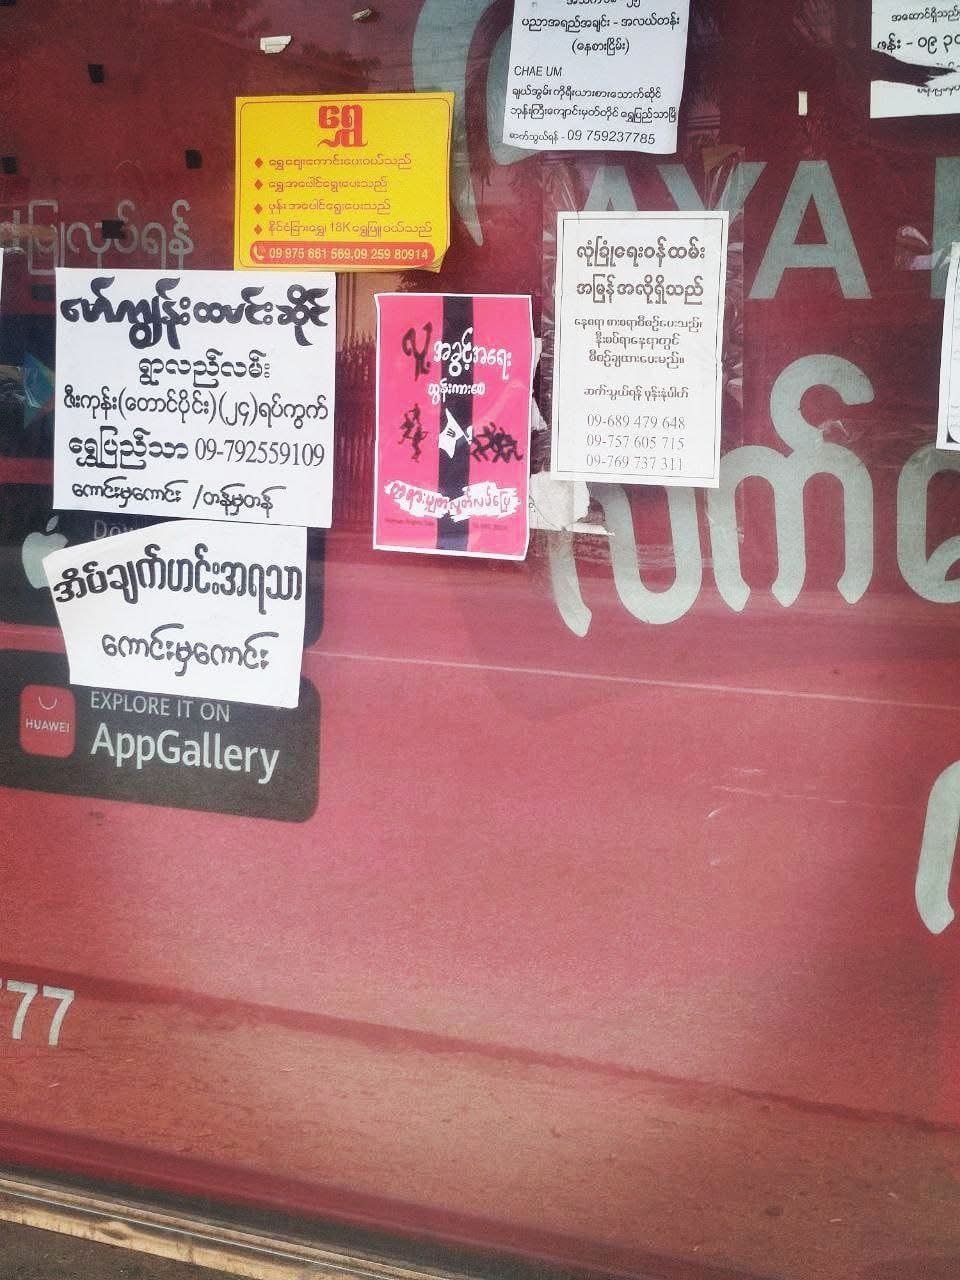 ပညာအရည်အချင်း - အလယ်တန်း
(နေ့စားငြိမ်း)
CHAE UM
ချယ်အွမ်း ကိုရီးယားစားသောက်ဆိုင်
ဘုန်းကြီးကျောင်းမှတ်တိုင် ရွှေပြည်သာမြို့
ဆက်သွယ်ရန် - 09 759237785
ဖုန်း - ၀၉
ရွှေ
ရွှေဈေးကောင်းပေးဝယ်သည်
ရွှေအပေါင်ရွေးပေးသည်
ဖုန်း အပေါင်ရွေးပေးသည်
နိုင်ငံခြားရွှေ၊ 18K ရွှေဖြူ ဝယ်သည်
09 975 661 569,09 259 80914
လုပ်ရန်
AYA
မော်ကျွန်းထမင်းဆိုင်
ရွာလည်လမ်း
ဇီးကုန်း(တောင်ပိုင်း)(၂၄)ရပ်ကွက်
ရွှေပြည်သာ 09-792559109
ကောင်းမှကောင်း /တန်မှတန်
လူ့အခွင့်အရေး
ထွန်းကားစေ
လုံခြုံရေးဝန်ထမ်း
အမြန်အလိုရှိသည်
နေစရာ စားစရာစီစဉ်ပေးသည်၊
နီးစပ်ရာနေရာတွင်
စီစဉ်ချထားပေးမည်။
ဆက်သွယ်ရန် ဖုန်းနံပါတ်
09-689 479 648
09-757 605 715
09-769 737 311
အိမ်ချက်ဟင်းအရသာ
ကောင်းမှကောင်း
HUAWEI
EXPLORE IT ON
AppGallery
77